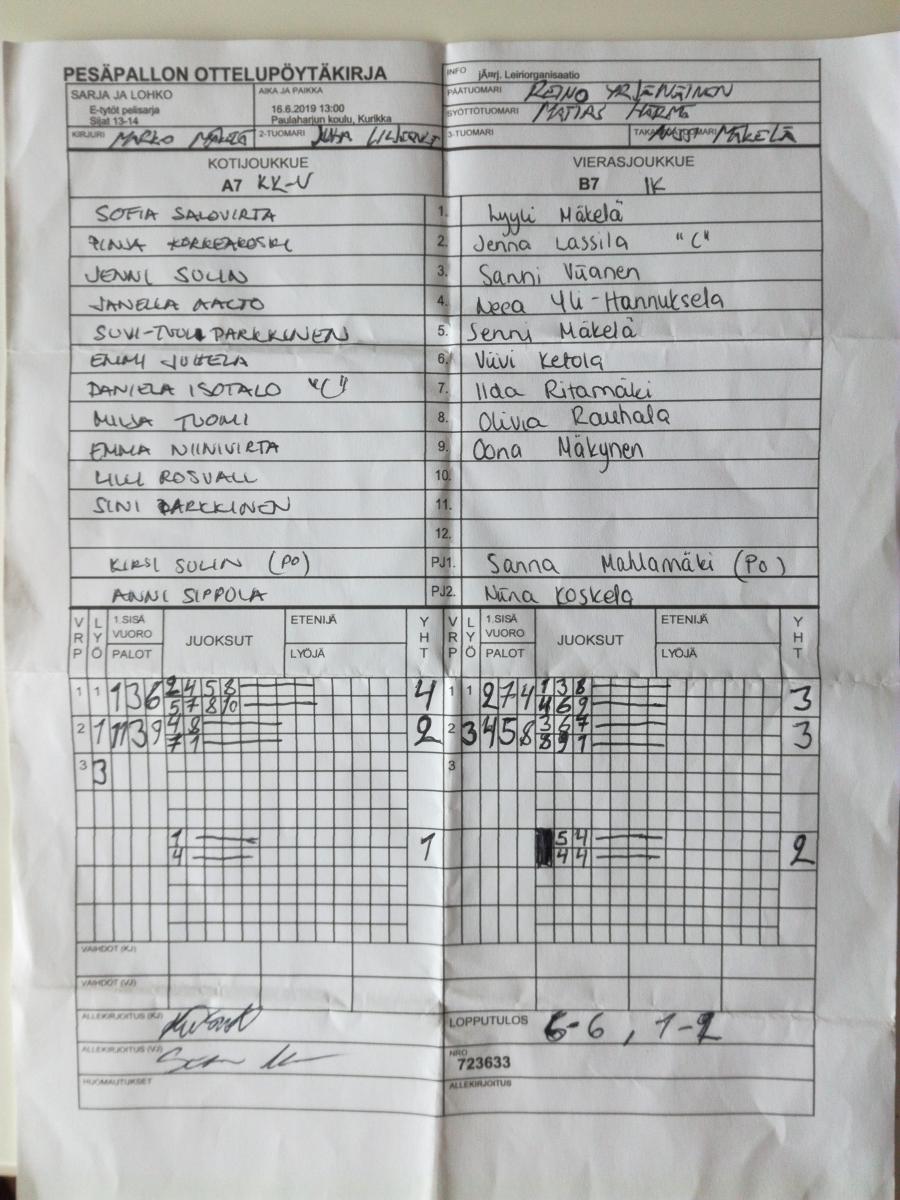 PESÄPALLON OTTELUPÖYTÄKIRJA
INFO jÃ¤rj. Leiriorganisaatio
SARJA JA LOHKO
E-tytöt pelisarja
Sijat 13-14
AIKA JA PAIKKA
16.6.2019 13:00
Paulaharjun koulu, Kurikka
PÄÄTUOMARI REINO YRJÄNÄINEN
SYÖTTÖTUOMARI MATIAS HÄRMÄ
KIRJURI MARKO MÄKELÄ 2-TUOMARI JUHA 3-TUOMARI MÄKELÄ
KOTIJOUKKUE VIERASJOUKKUE
A7 KK-V B7 IK
SOFIA SALOVIRTA 1. Lyyli Mäkelä
PINJA KORKEAKOSKI 2. Jenna Lassila "C"
JENNI SULIN 3. Sanni Viianen
JANELLA AALTO 4. Neea Yli-Hannuksela
PARKKINEN 5. Senni Mäkelä
EMMI JUTELA 6. Viivi Ketola
DANIELA ISOTALO "C" 7. Iida Ritamäki
MILJA TUOMI 8. Olivia Rauhala
EMMA NIINIVIRTA 9. Oona Mäkynen
LILLI ROSVALL 10.
SINI PARKKINEN 11.
12.
KIRSI SULIN (PO) PJ1. Sanna Mahlamäki (Po)
ANNI SIPPOLA PJ2. Niina Koskela
VRP LYÖ 1.SISÄ VUORO PALOT JUOKSUT ETENIJÄ LYÖJÄ YHT VRP LYÖ 1.SISÄ VUORO PALOT JUOKSUT ETENIJÄ LYÖJÄ YHT
1 1 1 3 6 2 4 5 8 4 1 1 2 7 4 1 3 8 3
5 7 8 10 4 6 9
2 1 11 3 9 4 8 2 2 3 4 5 8 3 6 7 3
7 1 8 9 1
3 3 3
1 1 5 4 2
4 4 4
VAIHDOT (KJ)
VAIHDOT (VJ)
ALLEKIRJOITUS (KJ) LOPPUTULOS 6-6, 1-2
ALLEKIRJOITUS (VJ) NRO
723633
HUOMAUTUKSET ALLEKIRJOITUS